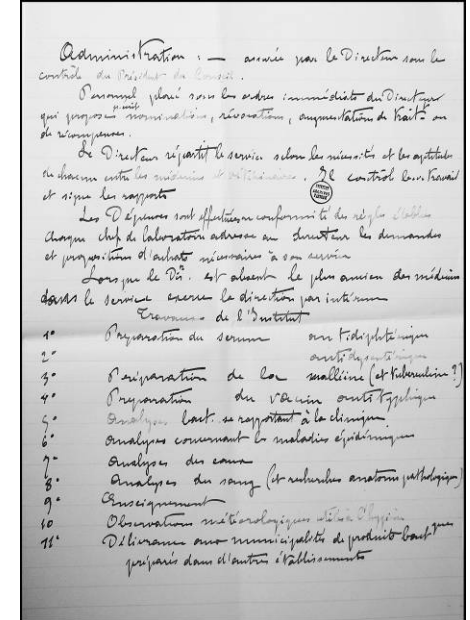 Administration : — assurée par le Directeur sous le
contrôle du Président du Conseil.
Personnel placé sous les ordres immédiats du Directeur
qui propose nominations, révocations, augmentations de trait ou
de récompenses.
Le Directeur répartit le service selon les nécessités et les aptitudes
de chacun entre les médecins et vétérinaires. Il contrôle le travail
et signe les rapports
Les Dépenses sont effectuées en conformité des règles établies
chaque chef de laboratoire adresse au directeur les demandes
et propositions d'achats nécessaires à son service
Lorsque le Dir. est absent le plus ancien des médecins
dans le service exerce la direction par intérim
Travaux de l'Institut
1° Préparation du serum antidiphtérique
2° antidysentérique
3° Préparation de la malléine (et tuberculine ?)
4° Préparation du vaccin antityphique
5° Analyses bact. se rapportant à la clinique
6° Analyses concernant les maladies épidémiques
7° Analyses des eaux
8° Analyses du sang (et recherches anatomo pathologiques)
9° Enseignement
10 Observations météorologiques
11° Délivrance aux municipalités de produits bactques
préparés dans d'autres établissements